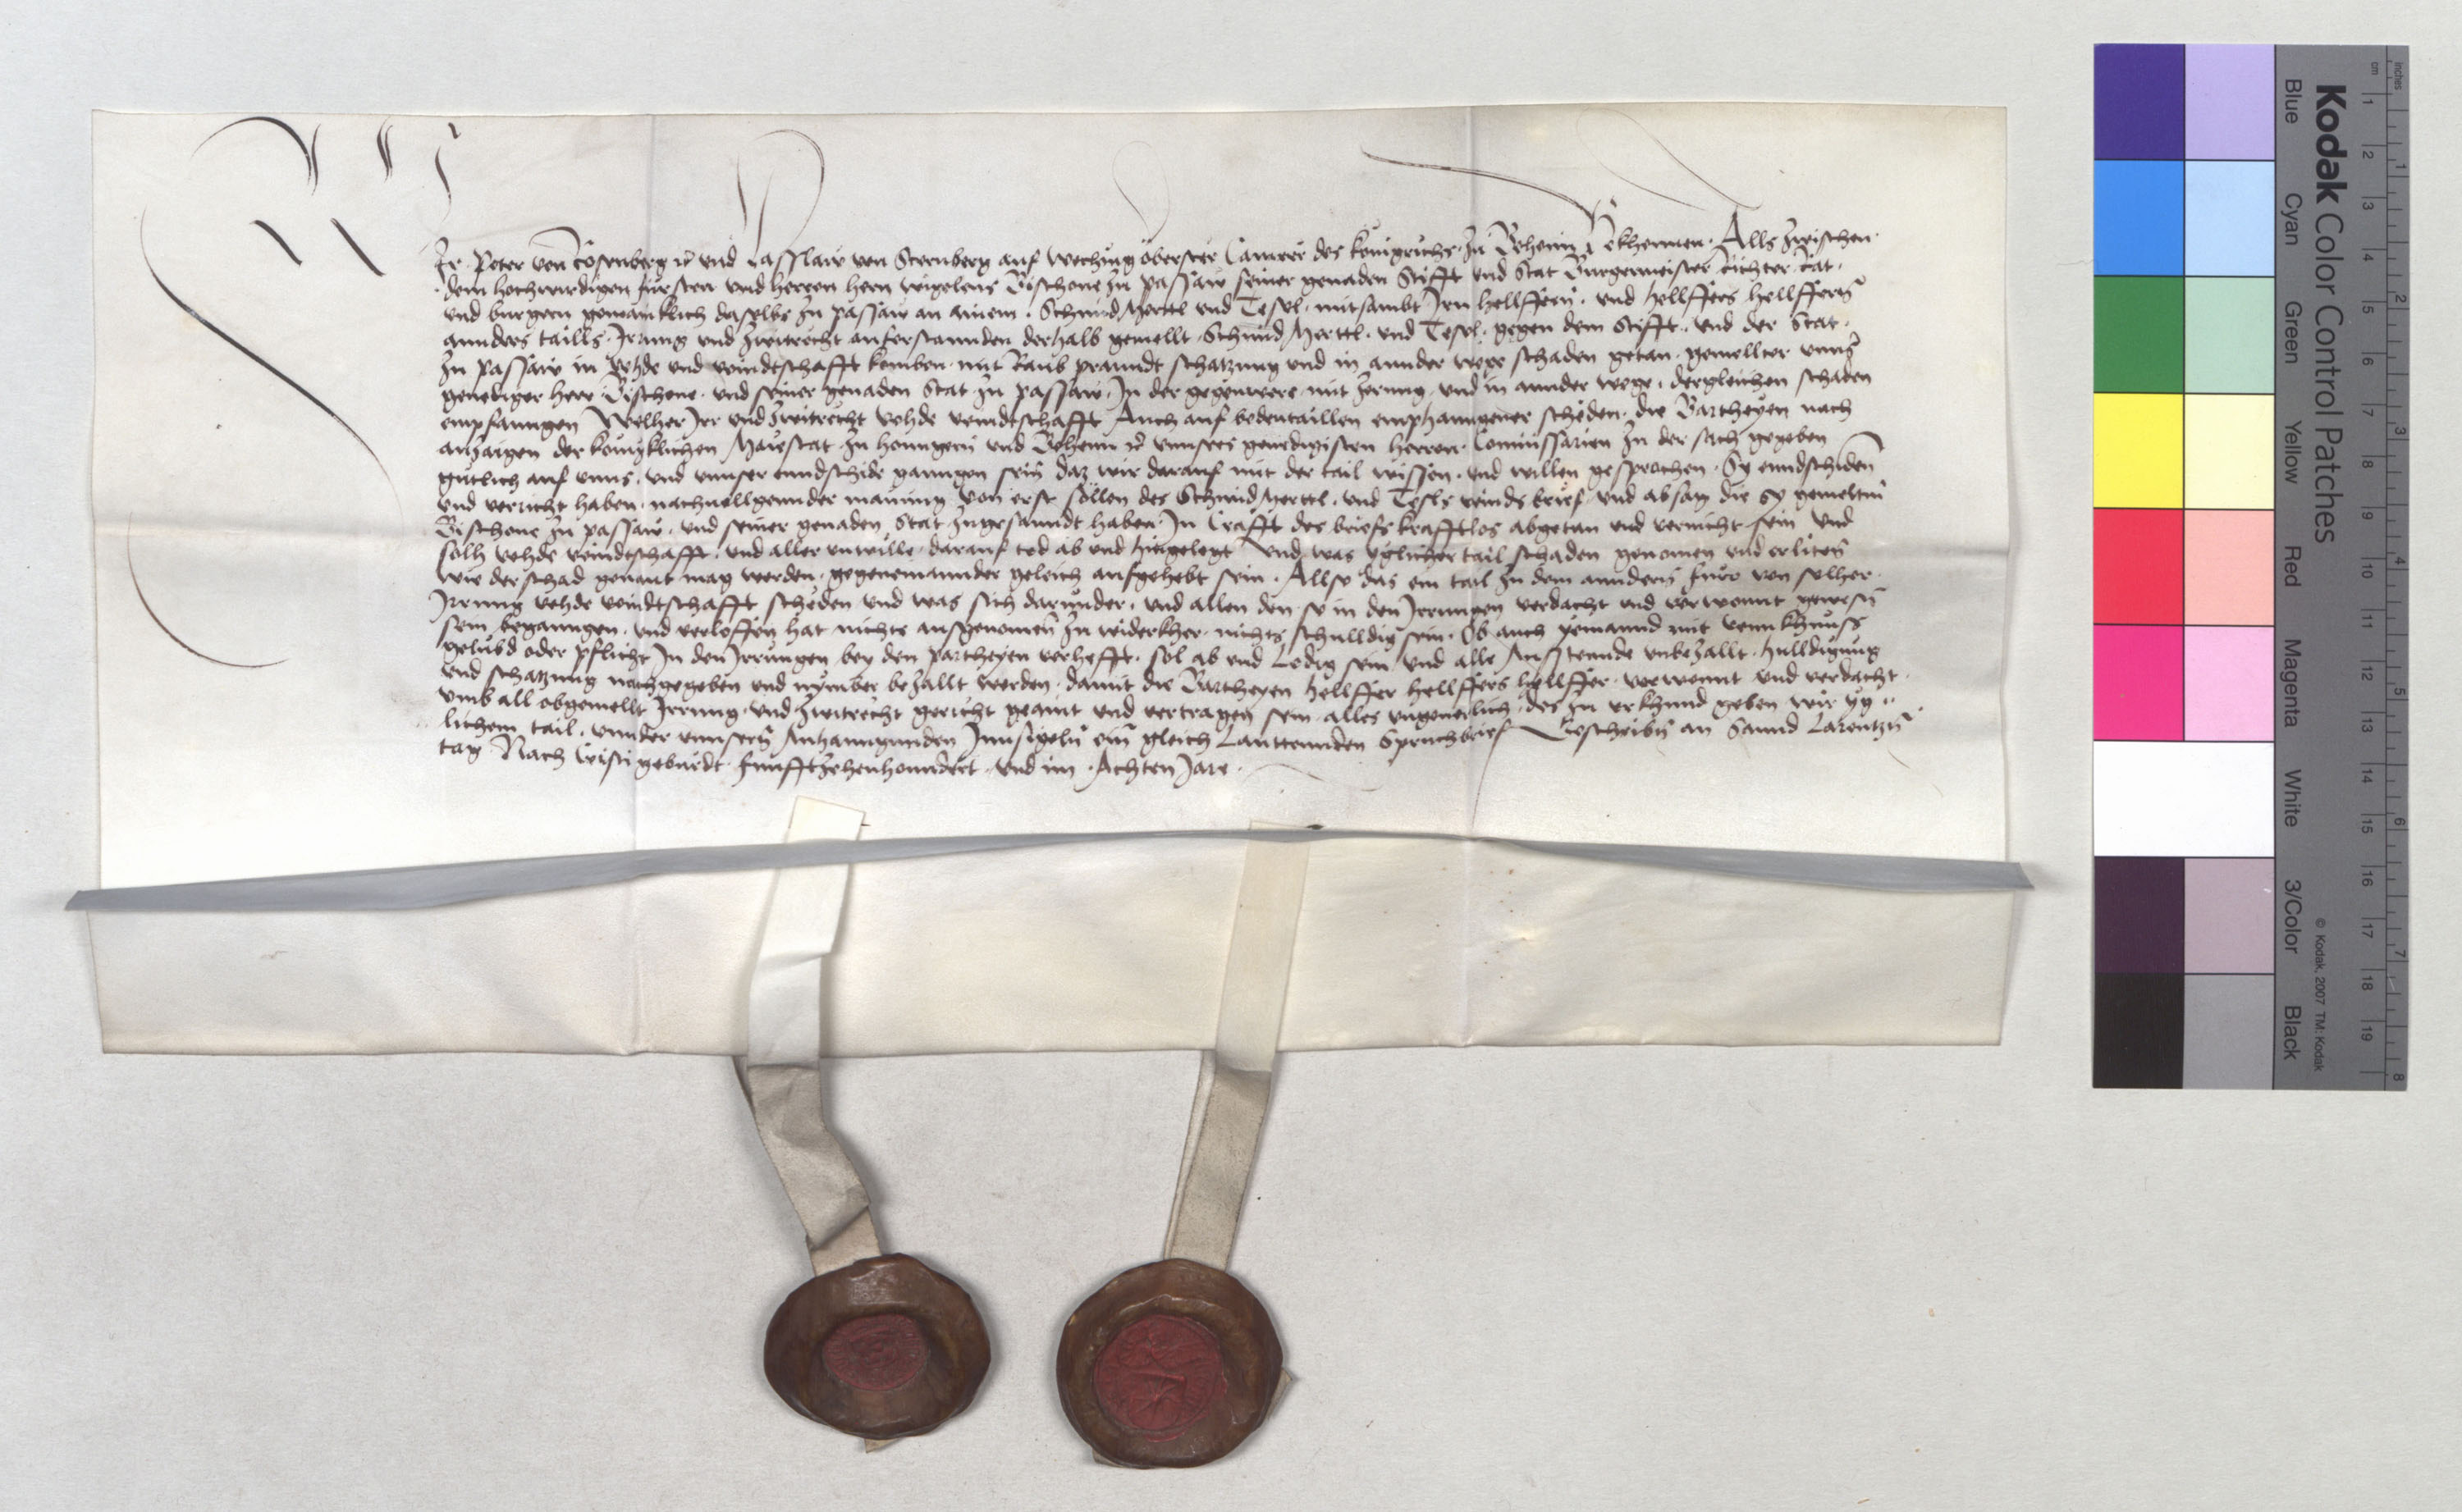 Wir Peter von Rosenberg ꝛc und Lasslaw von Sternberg auf Weching öberster Camrer des konigreichs zu Behenn Bekhennen. Alls zwischen
dem hochwirdigen fürsten und herren hern Wigeleus Bischoue zu passaw seiner genaden Stifft und Stat Burgermeister Richter Rat
und burgern gemainklich daselbs zu passaw an ainem. Schmid Merttl und Tesel. mitsambt Irn hellffern. und hellffers hellffern
annders taills. Irrung und zwitrecht auferstannden derhalb gemellt Schmid Merttl. und Tesel. gegen dem Stifft. und der Stat
zu passaw in Vehde und veindtschafft komben. mit Raub pranndt schatzung und in annder wege schaden getan. gemellter unns
genediger herr Bischoue. und seiner genaden Stat zu passaw. In der gegenwere mit zerung. und in annder wege. dergleichen schaden
empfanngen Welher Irr und zwitrecht Vehde veindtschafft Auch auf bedentaillen emphanngener scheden. die Partheyen nach
anzaigen der koniglichen Mayestat zu hunngern und Behenn ꝛc unnsers genedigisten herren. Comissarien In der sach gegeben
gütlich auf unns. und unnser enndschide ganngen sein daz wir darauf mit der tail wissen. und willen gesprochen. Sy enndschiden
und verricht haben. nachuollgennder mainung Von erst sollen des Schmid Merttl. und Tesls veinds brief. und absag die sy gemeltm
Bischoue zu passaw. und seiner genaden Stat zugesanndt haben In Crafft des briefs krafftlos abgetan und vernicht sein und
solh vehde veindtschafft. und aller unwille. darauf tod ab und hingelegt Und was yglicher tail schaden genomen und erliten
wie der schad genant mag werden. gegeneinannder geleich aufgehebt sein. Allso das ein tail zu dem anndern furo von solher
Irrung vehde veindtschafft scheden und was sich darunder. und allen den so in den Irrungen verdacht und verwonnt gewesn
sein beganngen. und verloffen hat nichts ausgenomen zu widerkher. nichts schulldig sein. Ob auch yemannd mit vennkhnuss
gelubd oder pflicht In den Irrungen bey den partheyen verhefft. sol ab und Ledig sein und alle Ausstennde unbezallt. hulldigung
und schatzung nachgegeben und nymber bezallt werden. damit die Partheyen hellffer hellffers hellffer. verwonnt und verdacht.
umb all obgemellt Irrung. und zwitrecht gericht geaint und vertragen sein alles ungeuerlich. des zu urkhund geben wir yg
lichem tail. unnder unnsern Anhanngunden Innsigeln ein gleich Lauttennden Spruchbrief Beschribn an Sannd Larentzn
tag Nach Cristi geburdt. funfftzehenhonndert. und im. Achten Jare.
Kodak Color Control Patches
Blue Cyan Green Yellow Red Magenta White 3/Color Black
© Kodak, 2007 TM: Kodak
cm 1 2 3 4 5 6 7 8 9 10 11 12 13 14 15 16 17 18 19
inches 1 2 3 4 5 6 7 8